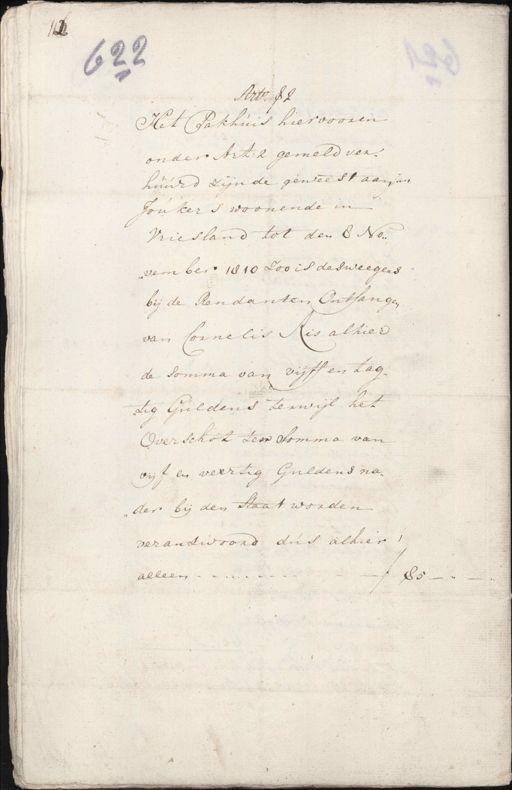 622
Art: 82
Het Pakhúis hiervooren
onder Art: 2 gemeld ver„
húúrd zijnde geweest aan Jan
Joúkers woonende in
Vriesland tot den 8 No„
„vember 1810 Zoo is desweegens
bij de Rendanten Ontfangen
van Cornelis Ris alhier
de Somma van vijff en tag„
tig Guldens terwijl het
Overschot ter Somma van
vijf en veertig Guldens na„
„der bij den Staat worden
verandwoord dús alhier
alleen - - - - - - - - - f 85 - „ -